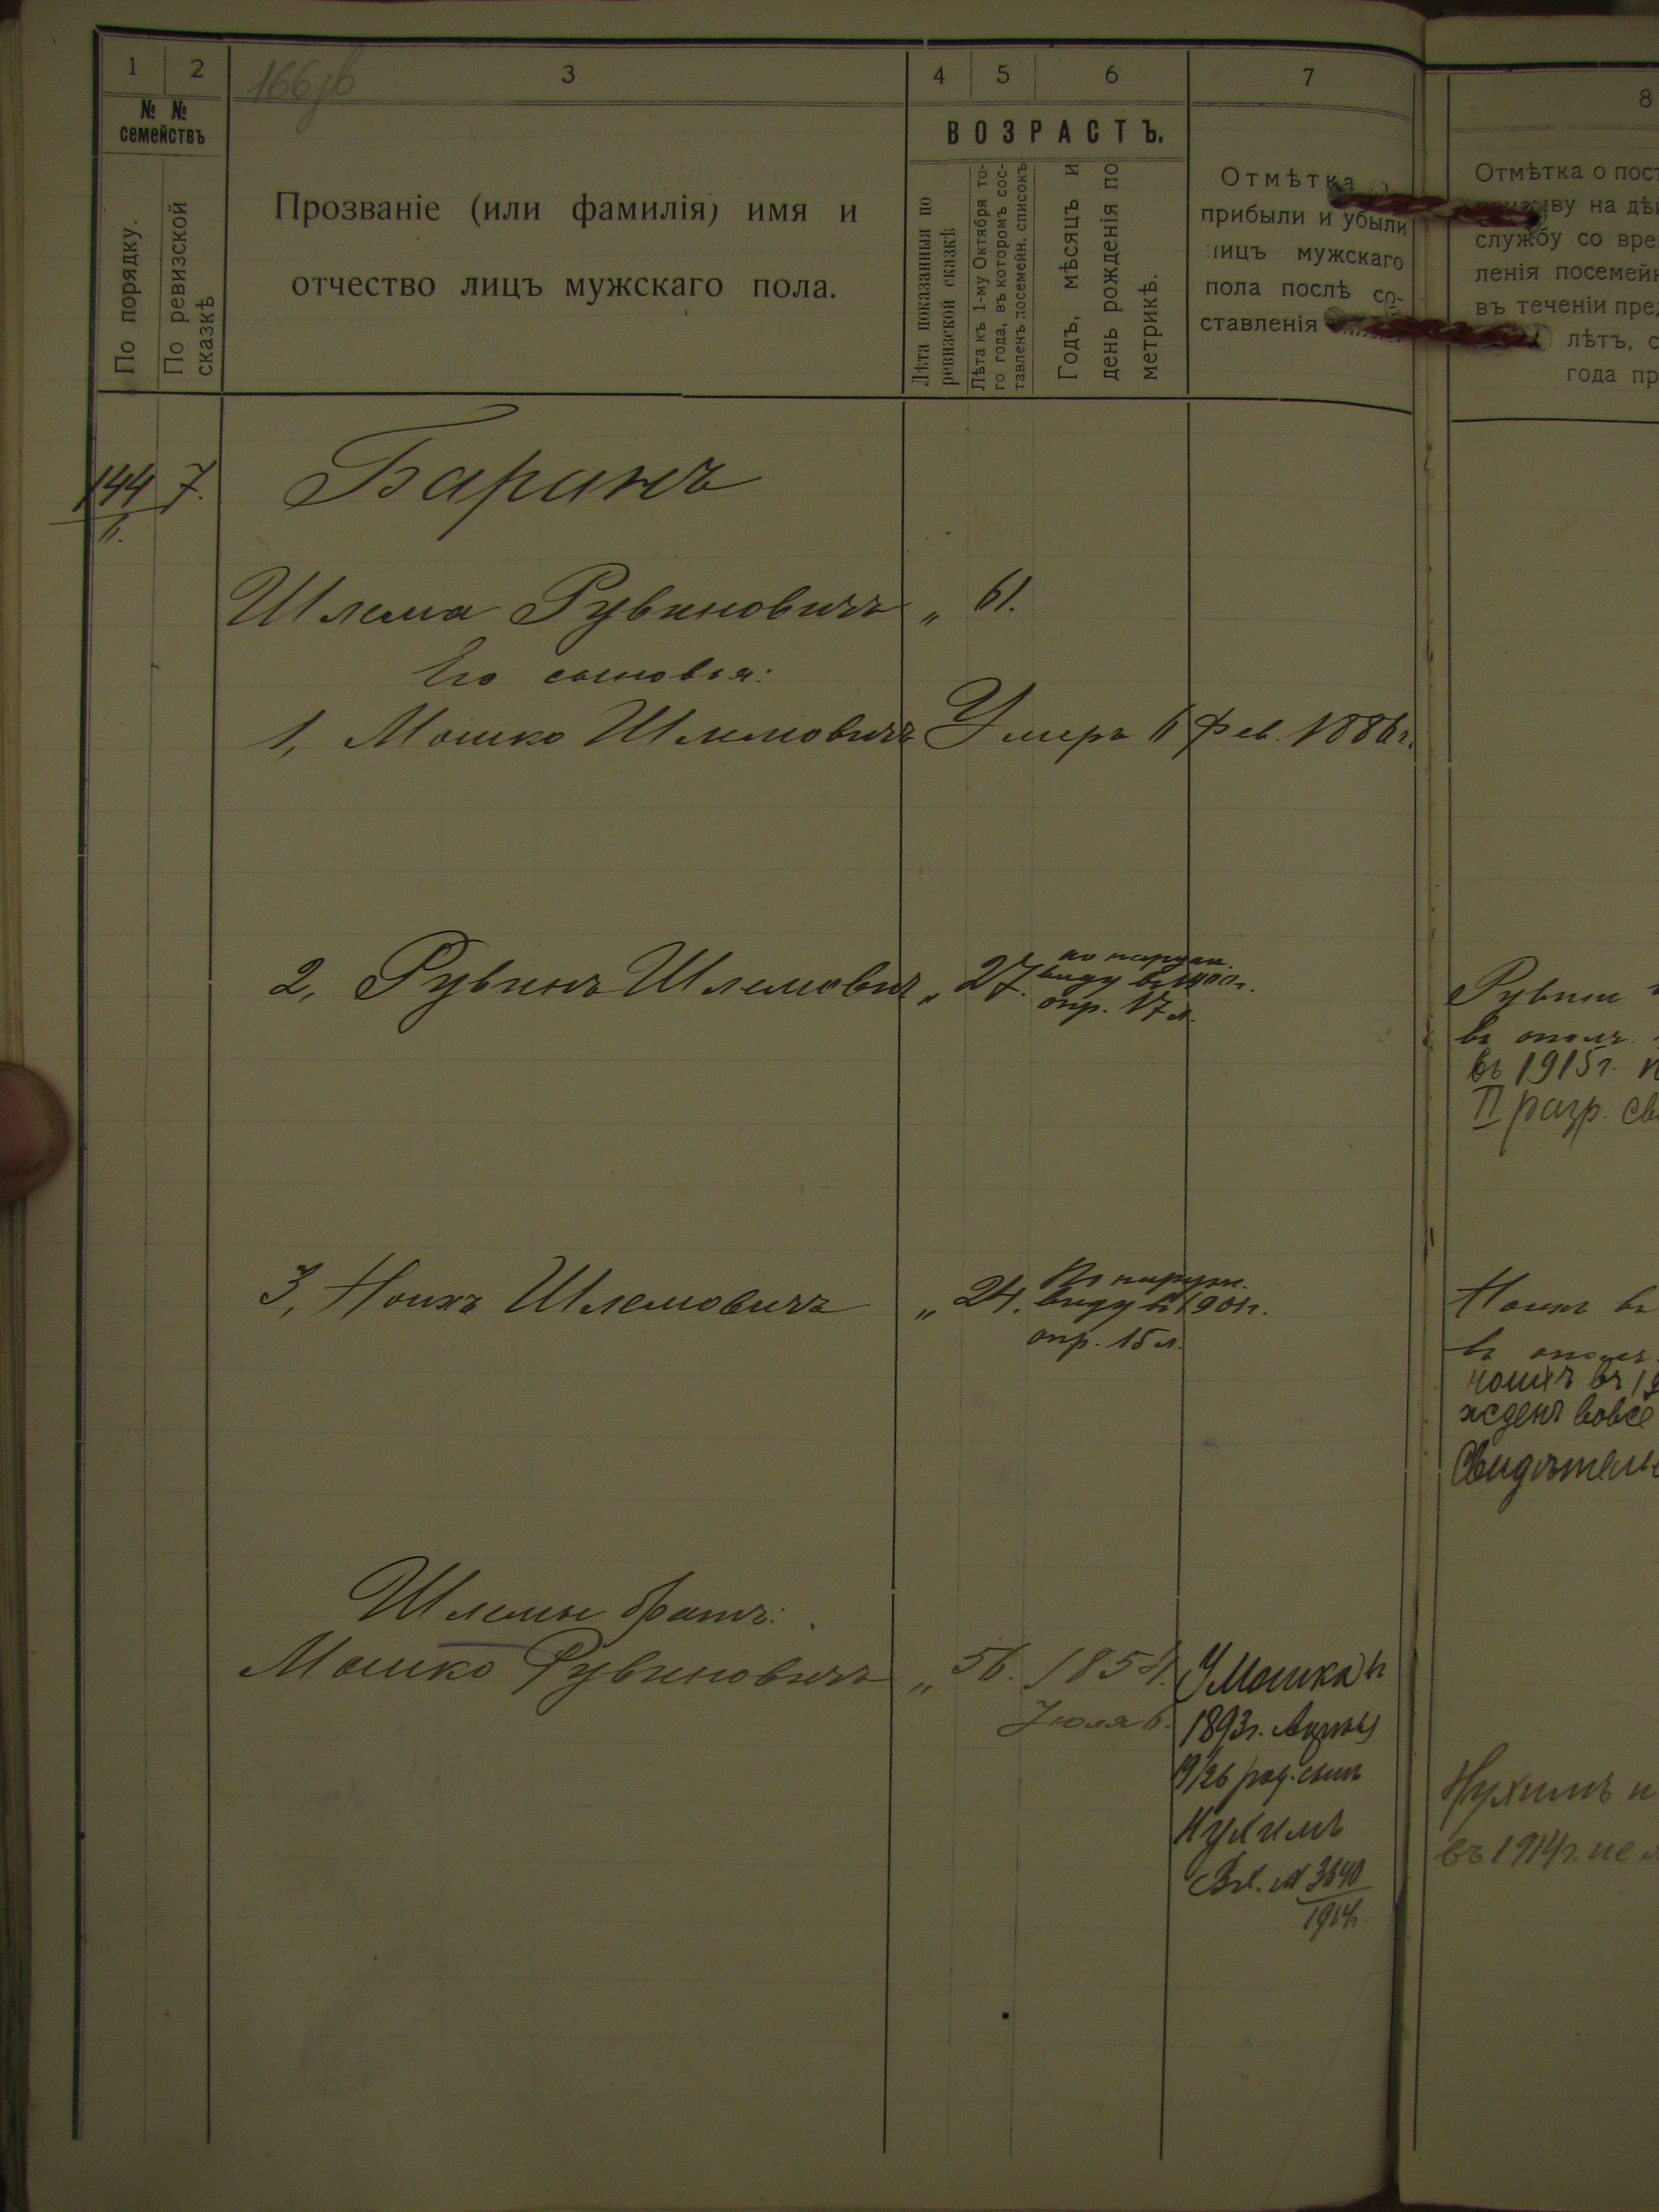 1 2 3 4 5 6 7 8
№ № семействъ
По порядку.
По ревизской сказкѣ
Прозваніе (или фамилія) имя и
отчество лицъ мужскаго пола.
ВОЗРАСТЪ.
Лѣта показанныя по
ревизской сказкѣ
Лѣта къ 1-му Октября то-
го года, въ которомъ сос-
тавленъ посемейн. списокъ
Годъ, мѣсяцъ и
день рожденія по
метрикѣ.
Отмѣтка
прибыли и убыли
лицъ мужскаго
пола послѣ со-
ставленія
Отмѣтка о пост
иву на дѣй
службу со вре
ленія посемейн
въ теченіи пред
лѣтъ, с
года пр
144 7. Баранъ
Шлема Рувиновичъ „ 61.
Его сыновья:
1, Мошко Шлемовичъ Умеръ 6 Фев. 1886г.
2, Рувинъ Шлемович „ 27. по наружн.
виду въ 1900г.
опр. 17 л.
Рувин
въ ополч.
въ 1915г.
II разр. св
3, Ноихъ Шлемовичъ „ 24. По наружн.
виду въ 1901г.
опр. 15 л.
Ноихъ въ
въ ополч.
Ноихъ въ 19
жденъ вовсе
Свидѣтель
Шлемы братъ:
Мошко Рувиновичъ „ 56. 1854.
Іюля 6.
У Мошка въ
1893г.
19/26 род. сынъ
Нухимъ
Вх. № 3640
1914г.
Нухимъ
въ 1914г. не